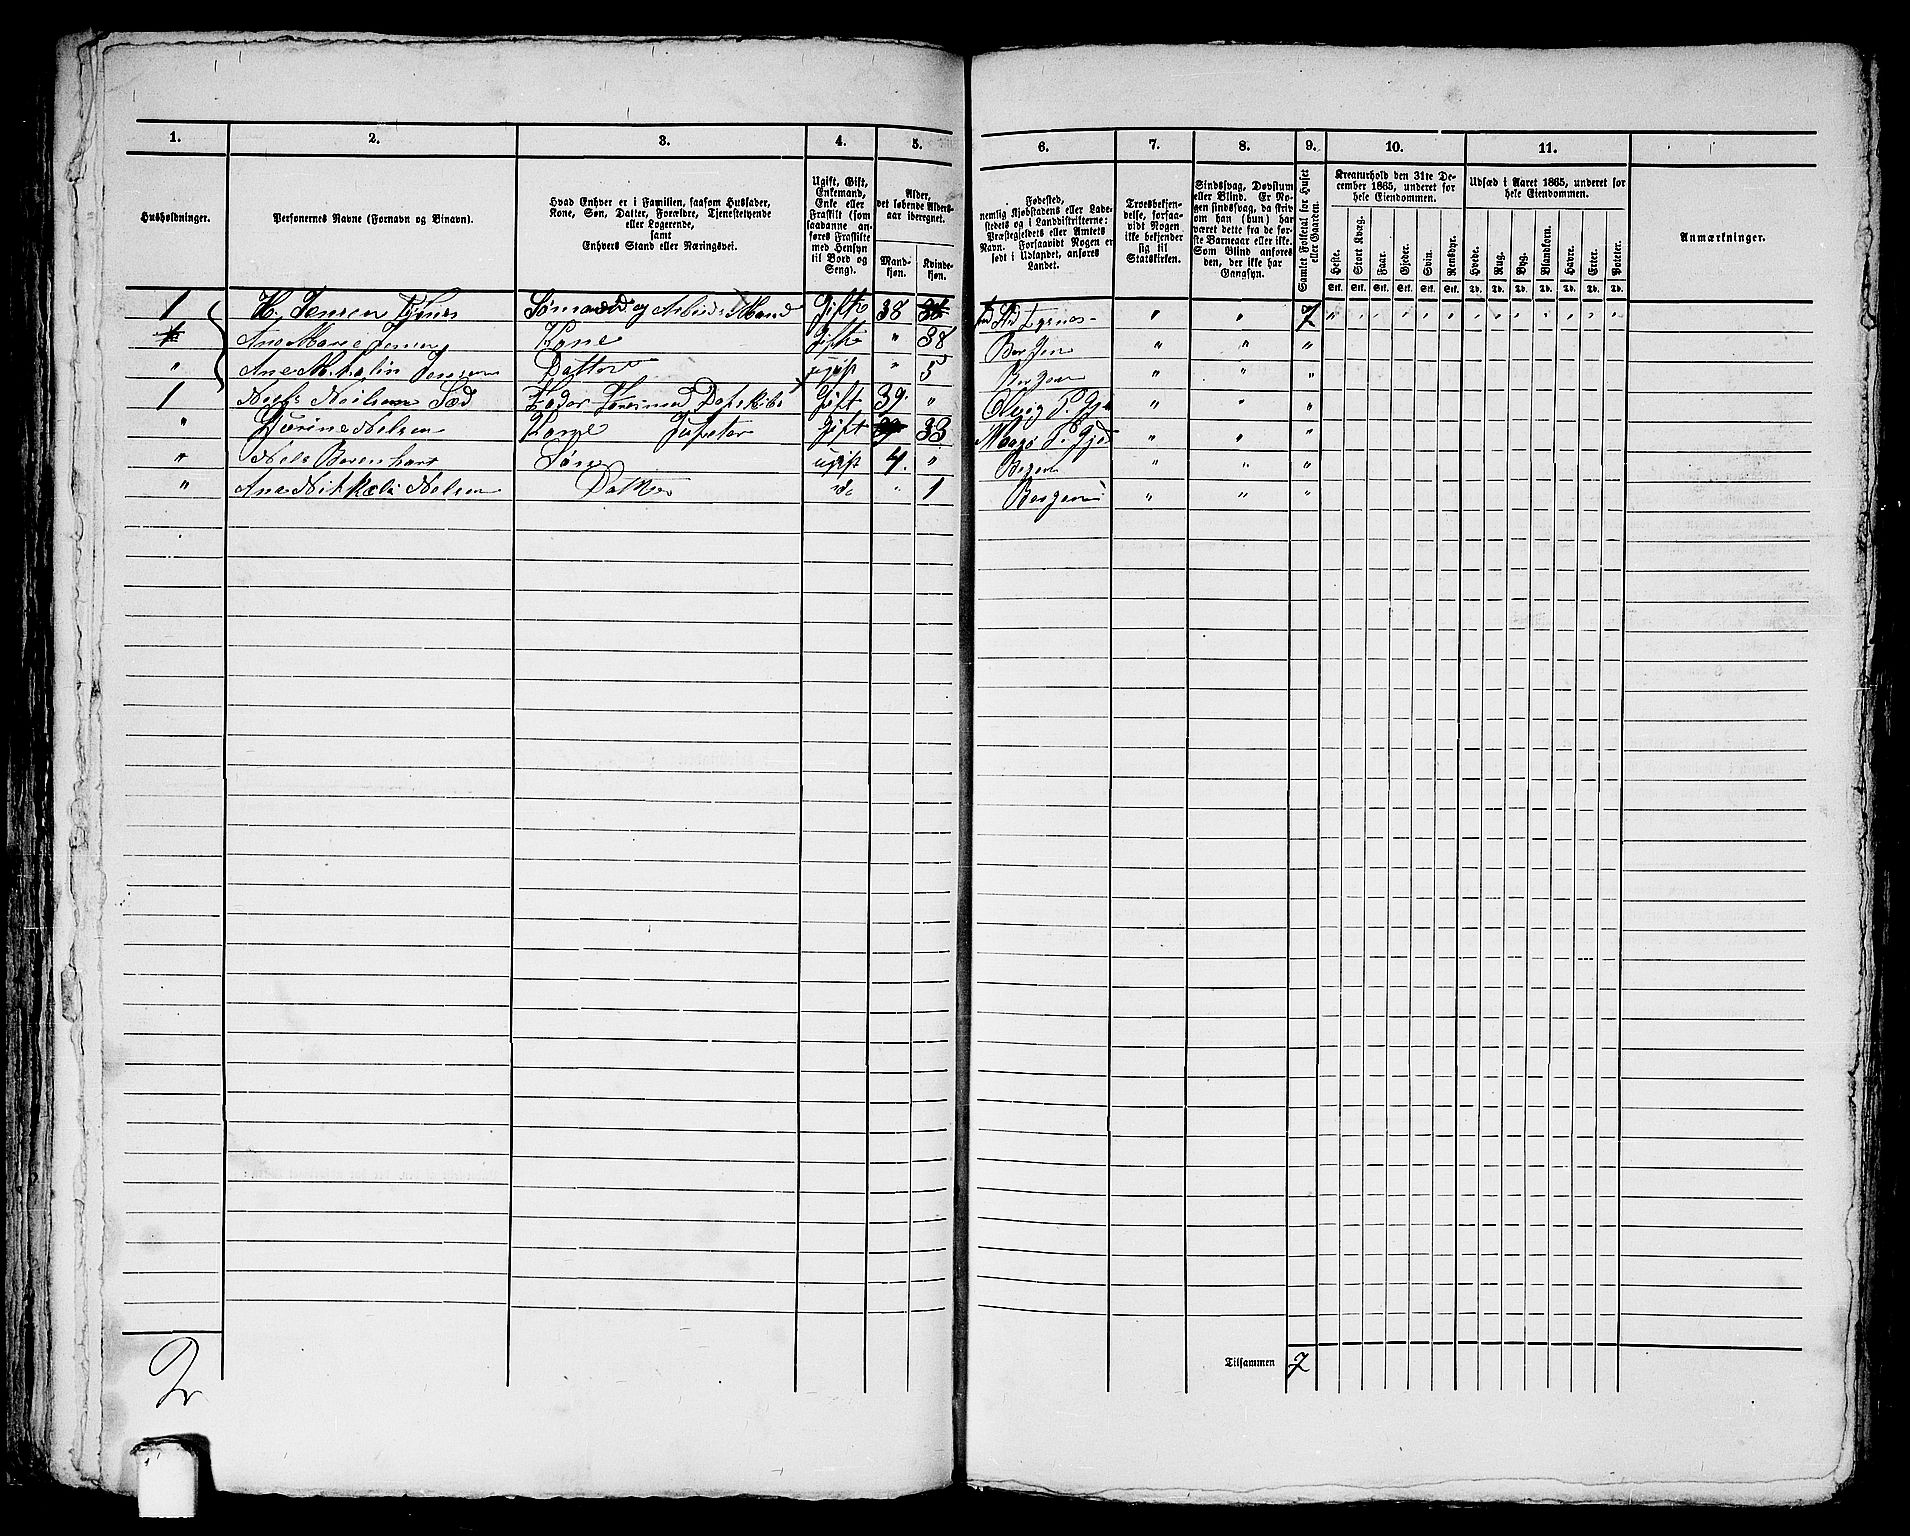 1. 2. 3. 4. 5. 6. 7. 8. 9. 10. 11.
Husholdninger.
Personernes Navne (Fornavn og Binavn).
Hvad Enhver er i Familien, saasom Husfader,
Kone, Søn, Datter, Forældre, Tjenestetyende
eller Logerende,
samt
Enhvers Stand eller Næringsvei.
Ugift, Gift,
Enkemand,
Enke eller
Fraskilt (som
saadanne an-
føres Fraskilte
med Hensyn
til Bord og
Seng).
Alder,
det løbende Alders-
aar iberegnet.
Mand-
kjøn.
Kvinde-
kjøn.
Fødested,
nemlig Kjøbstadens eller Lade-
stedets og i Landdistrikterne:
Præstegjeldets eller Amtets
Navn. Forsaavidt Nogen er
født i Udlandet, anføres
Landet.
Troesbekjen-
delse, forsaa-
vidt Nogen
ikke bekjender
sig til
Statskirken.
Sindssvag, Døvstum
eller Blind. Er No-
gen sindssvag, da skriv
om han (hun) har
været dette fra de før-
ste Barneaar eller ikke.
Som Blind anføres
den, der ikke har
Gangsyn.
Samlet Folketal for Huset
eller Gaarden.
Kreaturhold den 31te De-
cember 1865, underet for
hele Eiendommen.
Heste. Stort Kvæg. Faar. Gjeder. Svin. Rensdyr.
Stk. Stk. Stk. Stk. Stk. Stk.
Udsæd i Aaret 1865, underet for
hele Eiendommen.
Hvede. Rug. Byg. Blandkorn. Havre. Erter. Poteter.
Td. Td. Td. Td. Td. Td. Td.
Anmærkninger.
1 H. Jensen Tysnes Sømand og Arbeids Mand Gift 38 Tysnes " " 7
Ane Marie Jensen Kone Gift " 38 Bergen " " "
" Ane Jensen Datter ugift " 5 Bergen " " "
1 Niels Neilsen Sæd Gift 39. " " " "
" Nelsen Kone Gift 33 " " "
" Nels Berenhart Søn ugift 4. " Bergen " " "
" Ane Nelsen Datter do " 1 Bergen " " "
Tilsammen 7
2